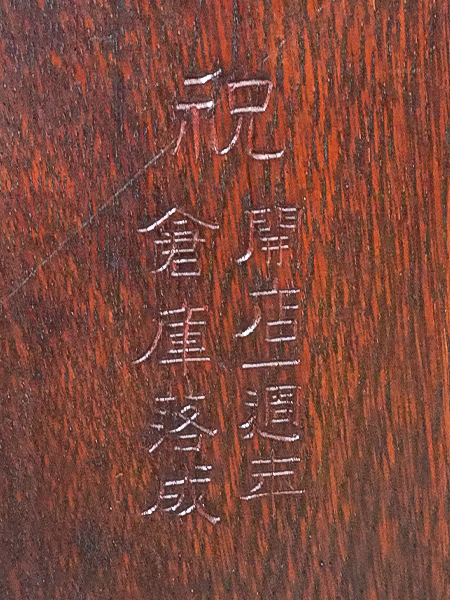 祝
開店一週年
倉庫落成